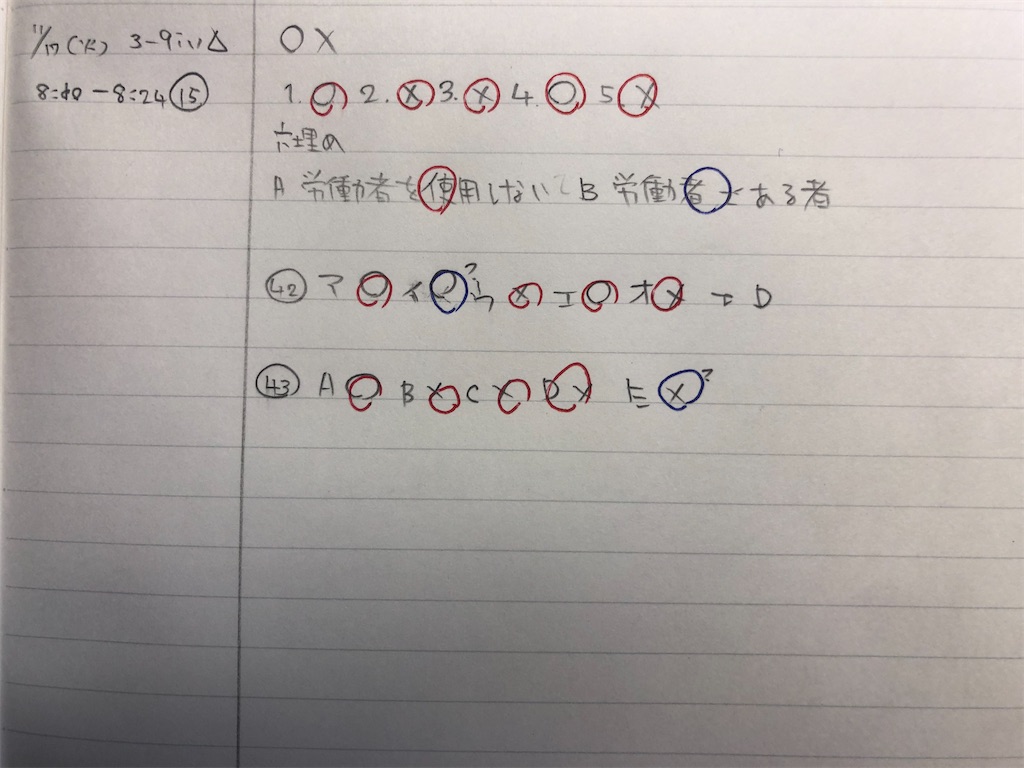 11/17(火) 3-9 ○×
8:10-8:24 ⑮ 1.○ 2.× 3.× 4.○ 5.×
穴埋め
A 労働者を使用しないで B 労働者である者
㊷ ア○ イ○? ウ× エ○ オ× → D
㊸ A○ B× C× D× E×?